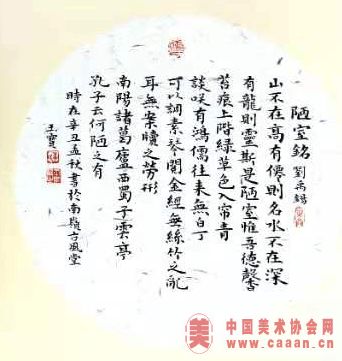 陋室銘 劉禹錫
山不在高有僊則名水不在深
有龍則靈斯是陋室惟吾德馨
苔痕上階綠草色入帘青
談咲有鴻儒往来無白丁
可以調素琴閱金經無絲竹之亂
耳無案牘之勞形
南陽諸葛廬西蜀子雲亭
孔子云何陋之有
時在辛丑孟秋書於南嶺古風堂
王
美
中国美术协会网
www.caaan.cn